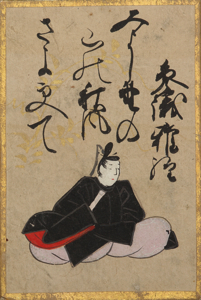 参議雅経
みよし野の
山の秋風
さよ更て